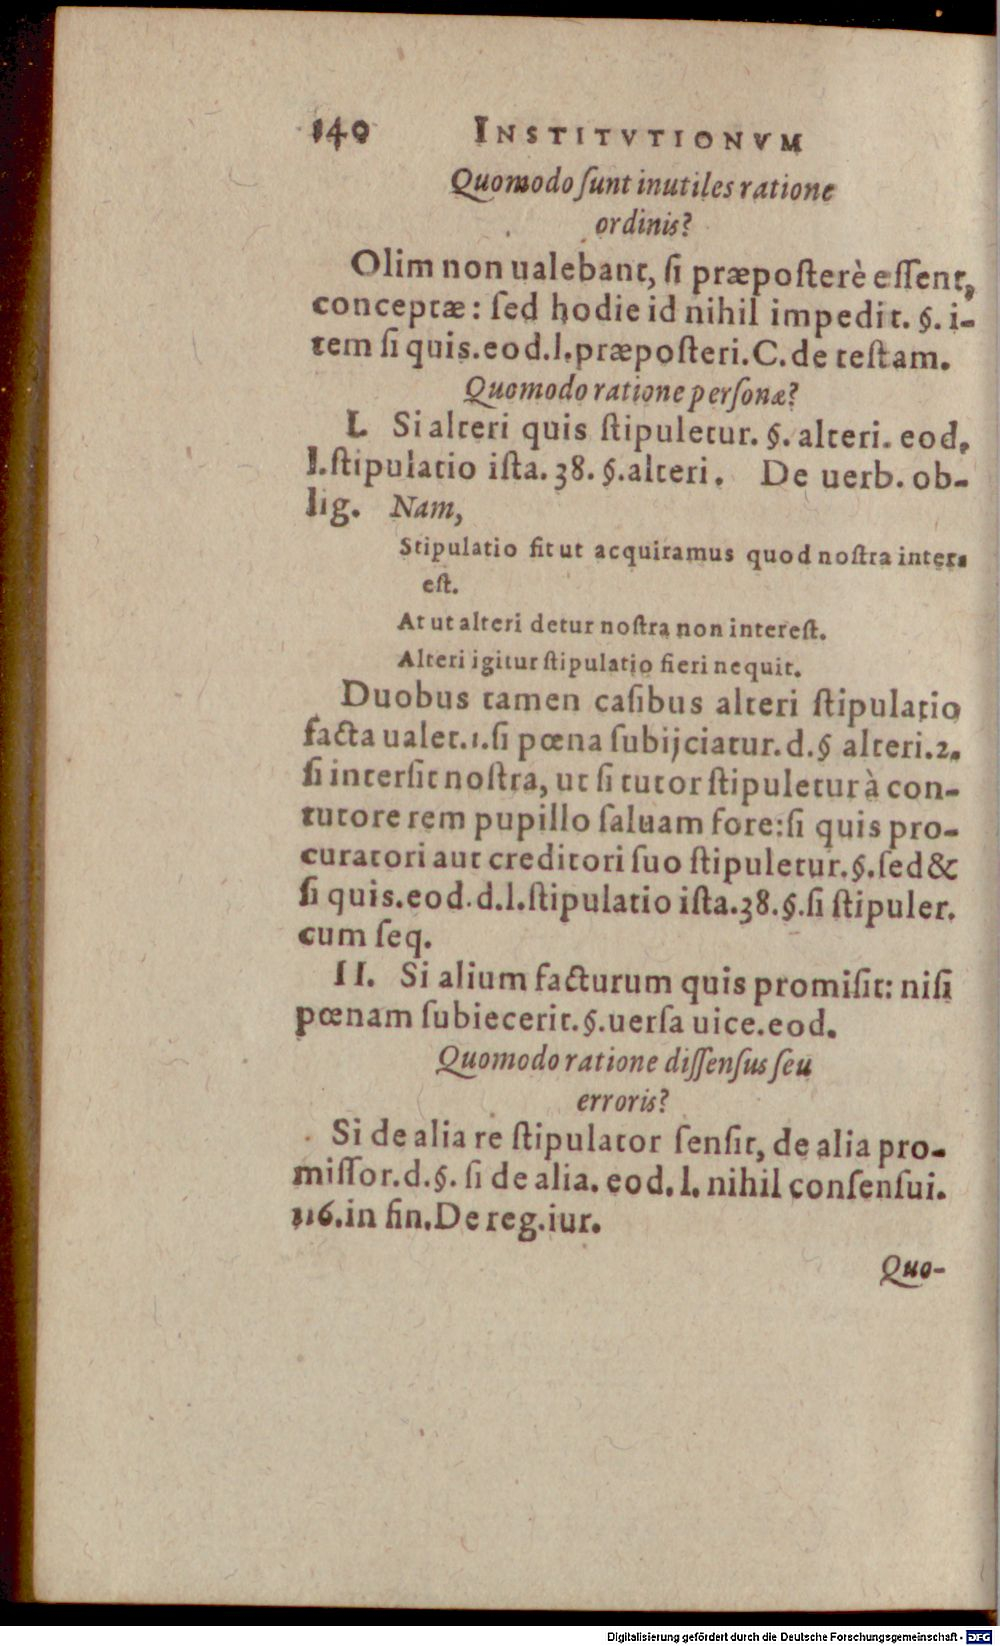 140 INSTITVTIONVM
Quomodo ſunt inutiles ratione
ordinis?
Olim non ualebant, ſi præpoſterè eſſent,
conceptæ: ſed hodie id nihil impedit. §. i-
tem ſi quis.eod.l.præpoſteri.C.de teſtam.
Quomodo ratione perſonæ?
I. Si alteri quis ſtipuletur. §. alteri. eod.
l.ſtipulatio iſta. 38. §.alteri. De uerb. ob-
lig. Nam,
Stipulatio fit ut acquiramus quod noſtra inter-
eſt.
At ut alteri detur noſtra non intereſt.
Alteri igitur ſtipulatio fieri nequit.
Duobus tamen caſibus alteri ſtipulatio
facta ualet.1.ſi pœna ſubijciatur.d.§ alteri.2.
ſi interſit noſtra, ut ſi tutor ſtipuletur à con-
tutore rem pupillo ſaluam fore:ſi quis pro-
curatori aut creditori ſuo ſtipuletur.§.ſed &
ſi quis.eod.d.l.ſtipulatio iſta.38.§.ſi ſtipuler.
cum ſeq.
II. Si alium facturum quis promiſit: niſi
pœnam ſubiecerit.§.uerſa uice.eod.
Quomodo ratione diſſenſus ſeu
erroris?
Si de alia re ſtipulator ſenſit, de alia pro-
miſſor.d.§. ſi de alia. eod. l. nihil conſenſui.
116.in fin.De reg.iur.
Quo-
Digitalisierung gefördert durch die Deutsche Forschungsgemeinschaft - DFG